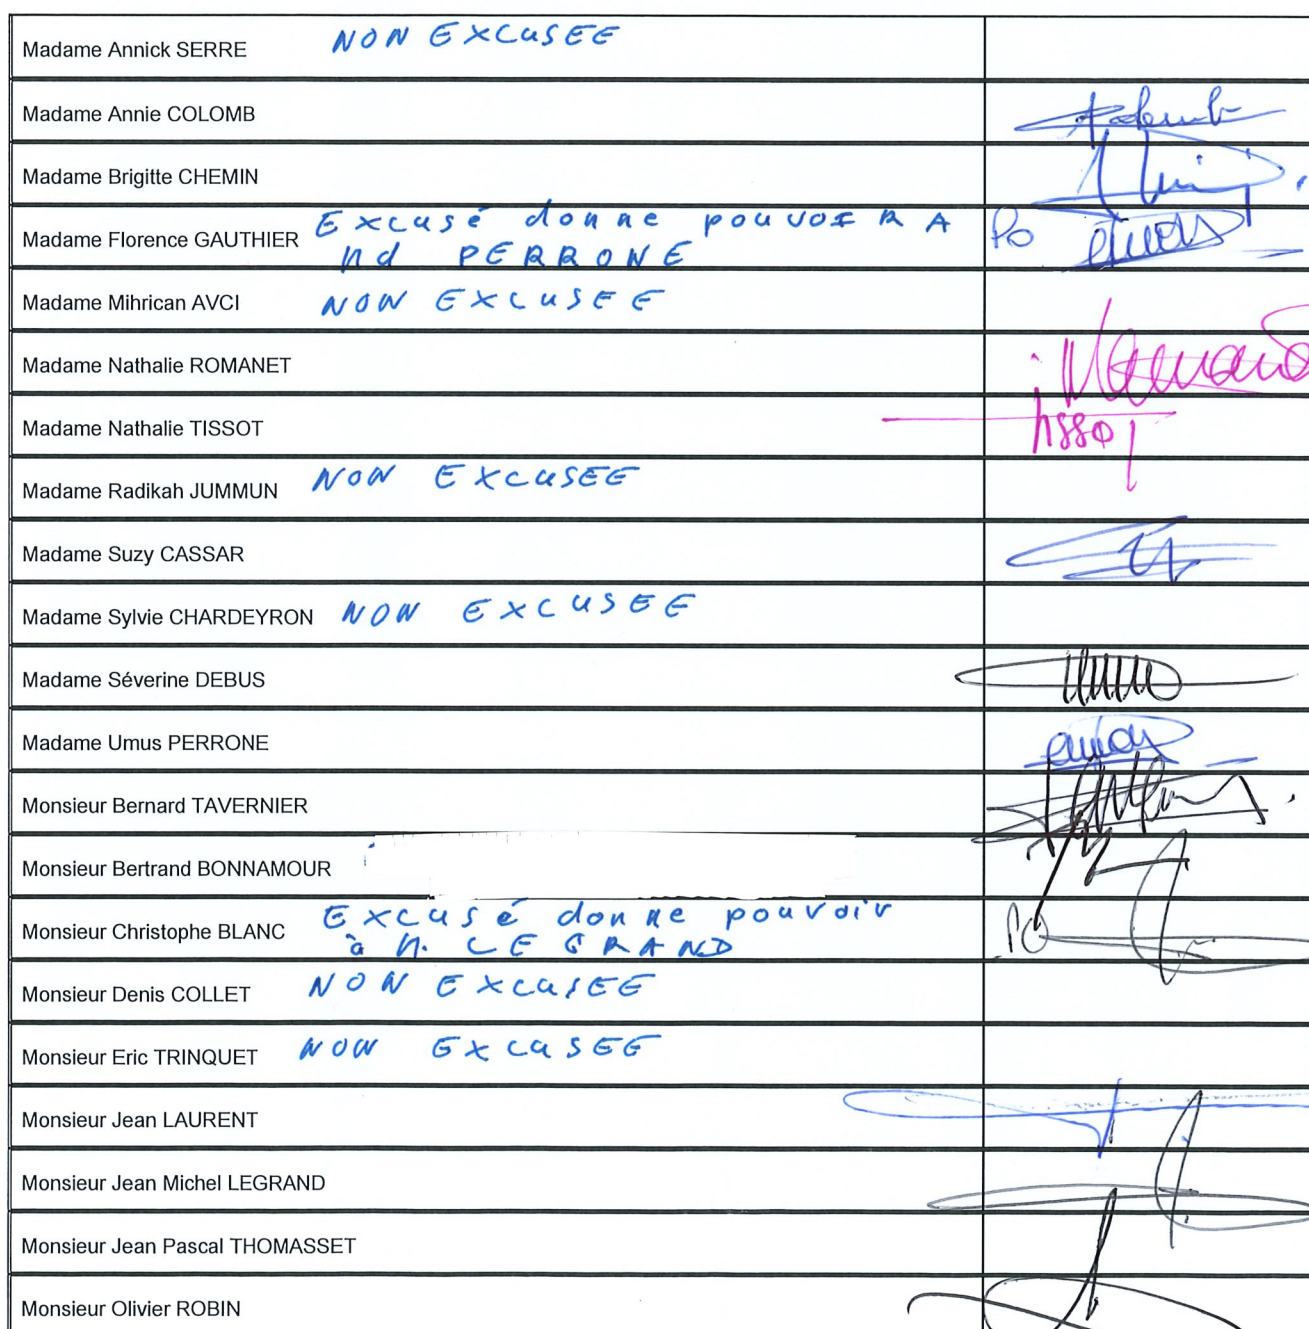 Madame Annick SERRE NON EXCUSEE
Madame Annie COLOMB
Madame Brigitte CHEMIN
Madame Florence GAUTHIER Excusé donne pouvoir A
Md PERRONE Po
Madame Mihrican AVCI NON EXCUSEE
Madame Nathalie ROMANET
Madame Nathalie TISSOT Tissot
Madame Radikah JUMMUN NON EXCUSEE
Madame Suzy CASSAR
Madame Sylvie CHARDEYRON NON EXCUSEE
Madame Séverine DEBUS
Madame Umus PERRONE
Monsieur Bernard TAVERNIER
Monsieur Bertrand BONNAMOUR
Monsieur Christophe BLANC Excusé donne pouvoir
à M. LE GRAND PO
Monsieur Denis COLLET NON EXCUSEE
Monsieur Eric TRINQUET NON EXCUSEE
Monsieur Jean LAURENT
Monsieur Jean Michel LEGRAND
Monsieur Jean Pascal THOMASSET
Monsieur Olivier ROBIN